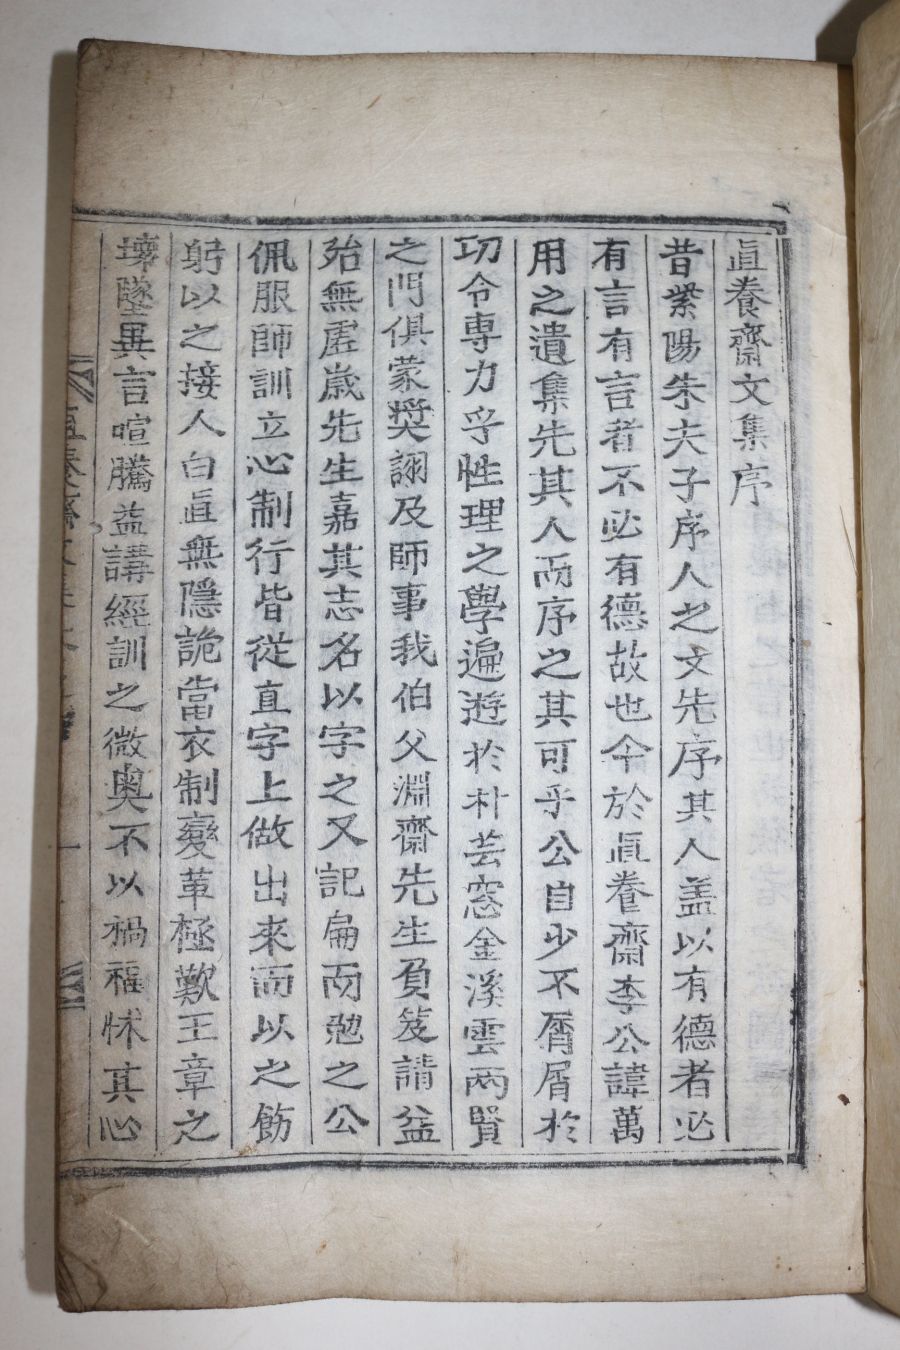 眞養齋文集序
昔紫陽朱夫子序人之文先序其人盖以有德者必
有言有言者不必有德故也今於眞養齋李公諱萬
用之遺集先其人而序之其可乎公自少不屑屑於
功令專力乎性理之學遍遊於朴芸窓金溪雲兩賢
之門俱蒙奬詡及師事我伯父淵齋先生負笈請益
殆無虛歲先生嘉其志名以字之又記扁而勉之公
佩服師訓立心制行皆從直字上做出來而以之飭
躬以之接人白直無隱詭當衣制變革極歎王章之
壞墜異言喧騰益講經訓之微奧不以禍福怵其心